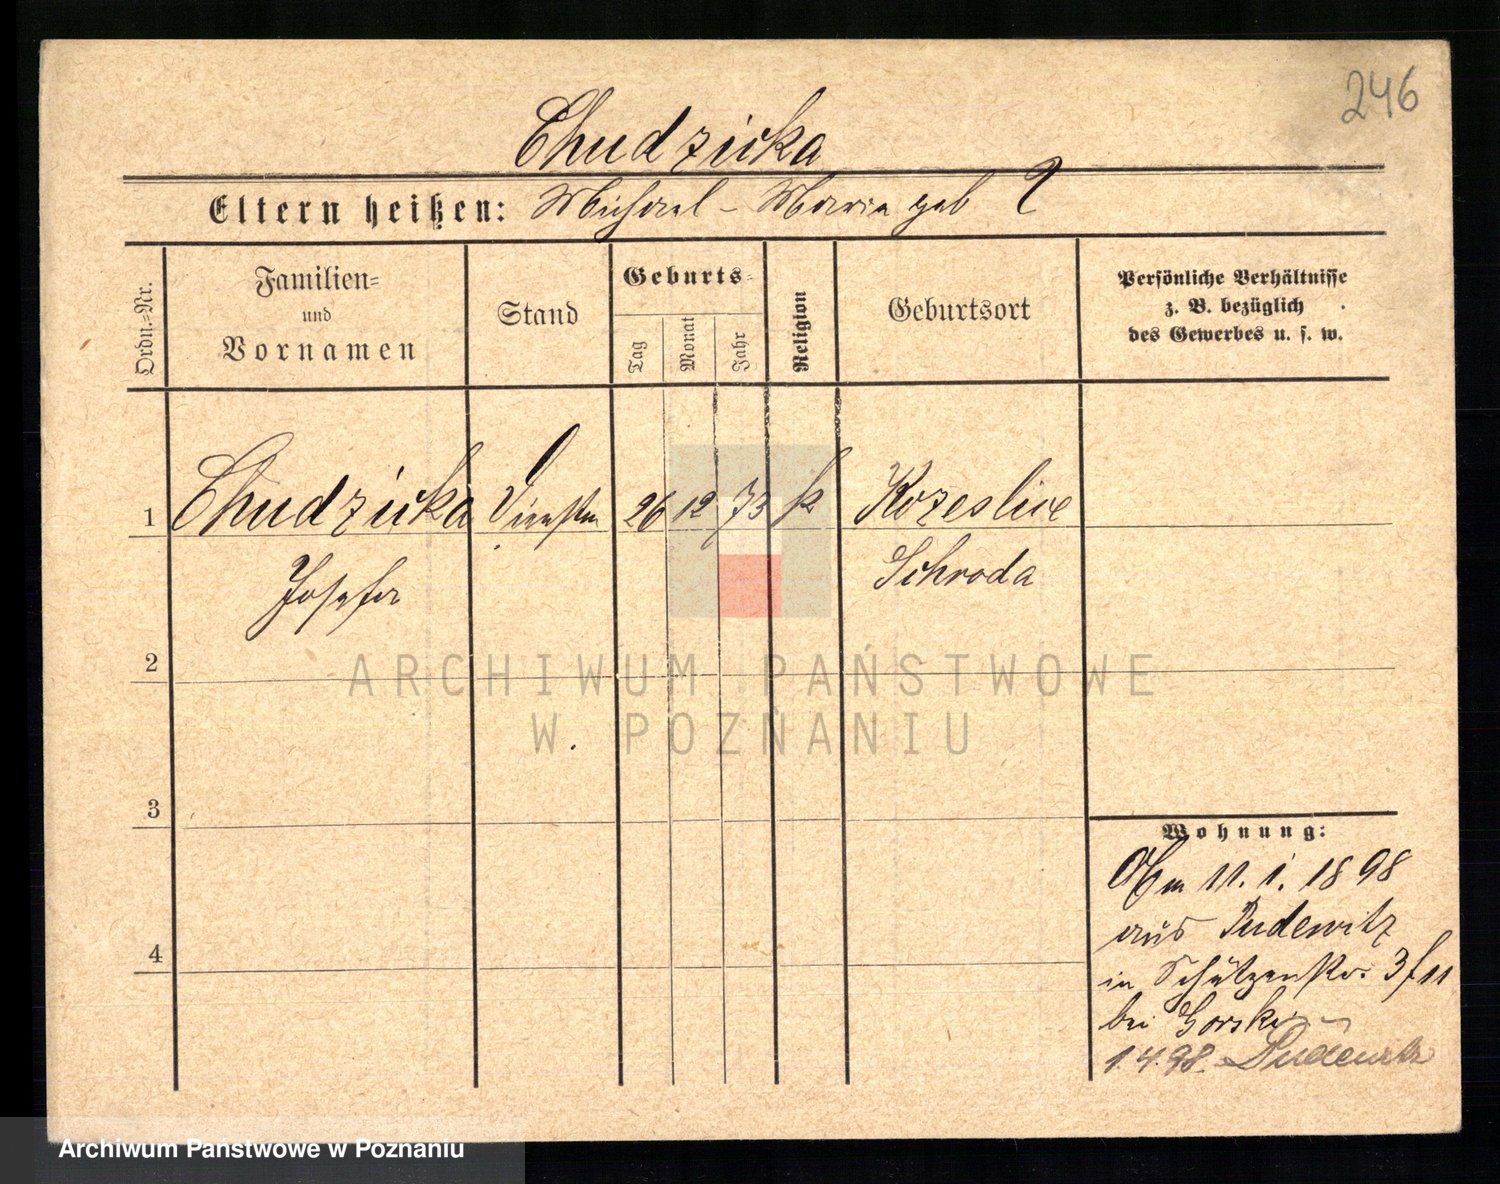 246
Chudzicka
Eltern heißen: Michael - Maria geb ?
Ordn.=Nr.
Familien=
und
Vornamen
Stand
Geburts=
Tag
Monat
Jahr
Religion
Geburtsort
Persönliche Verhältnisse
z. B. bezüglich
des Gewerbes u. s. w.
1 Chudzicka 26 12 73 k
Josefa Schroda
2
3
4
Wohnung:
11. 1. 1898
aus Pudewitz
in Schützenstr. 3
bei Gorski
1.4.98. Pudewitz
ARCHIWUM PAŃSTWOWE
W POZNANIU
Archiwum Państwowe w Poznaniu